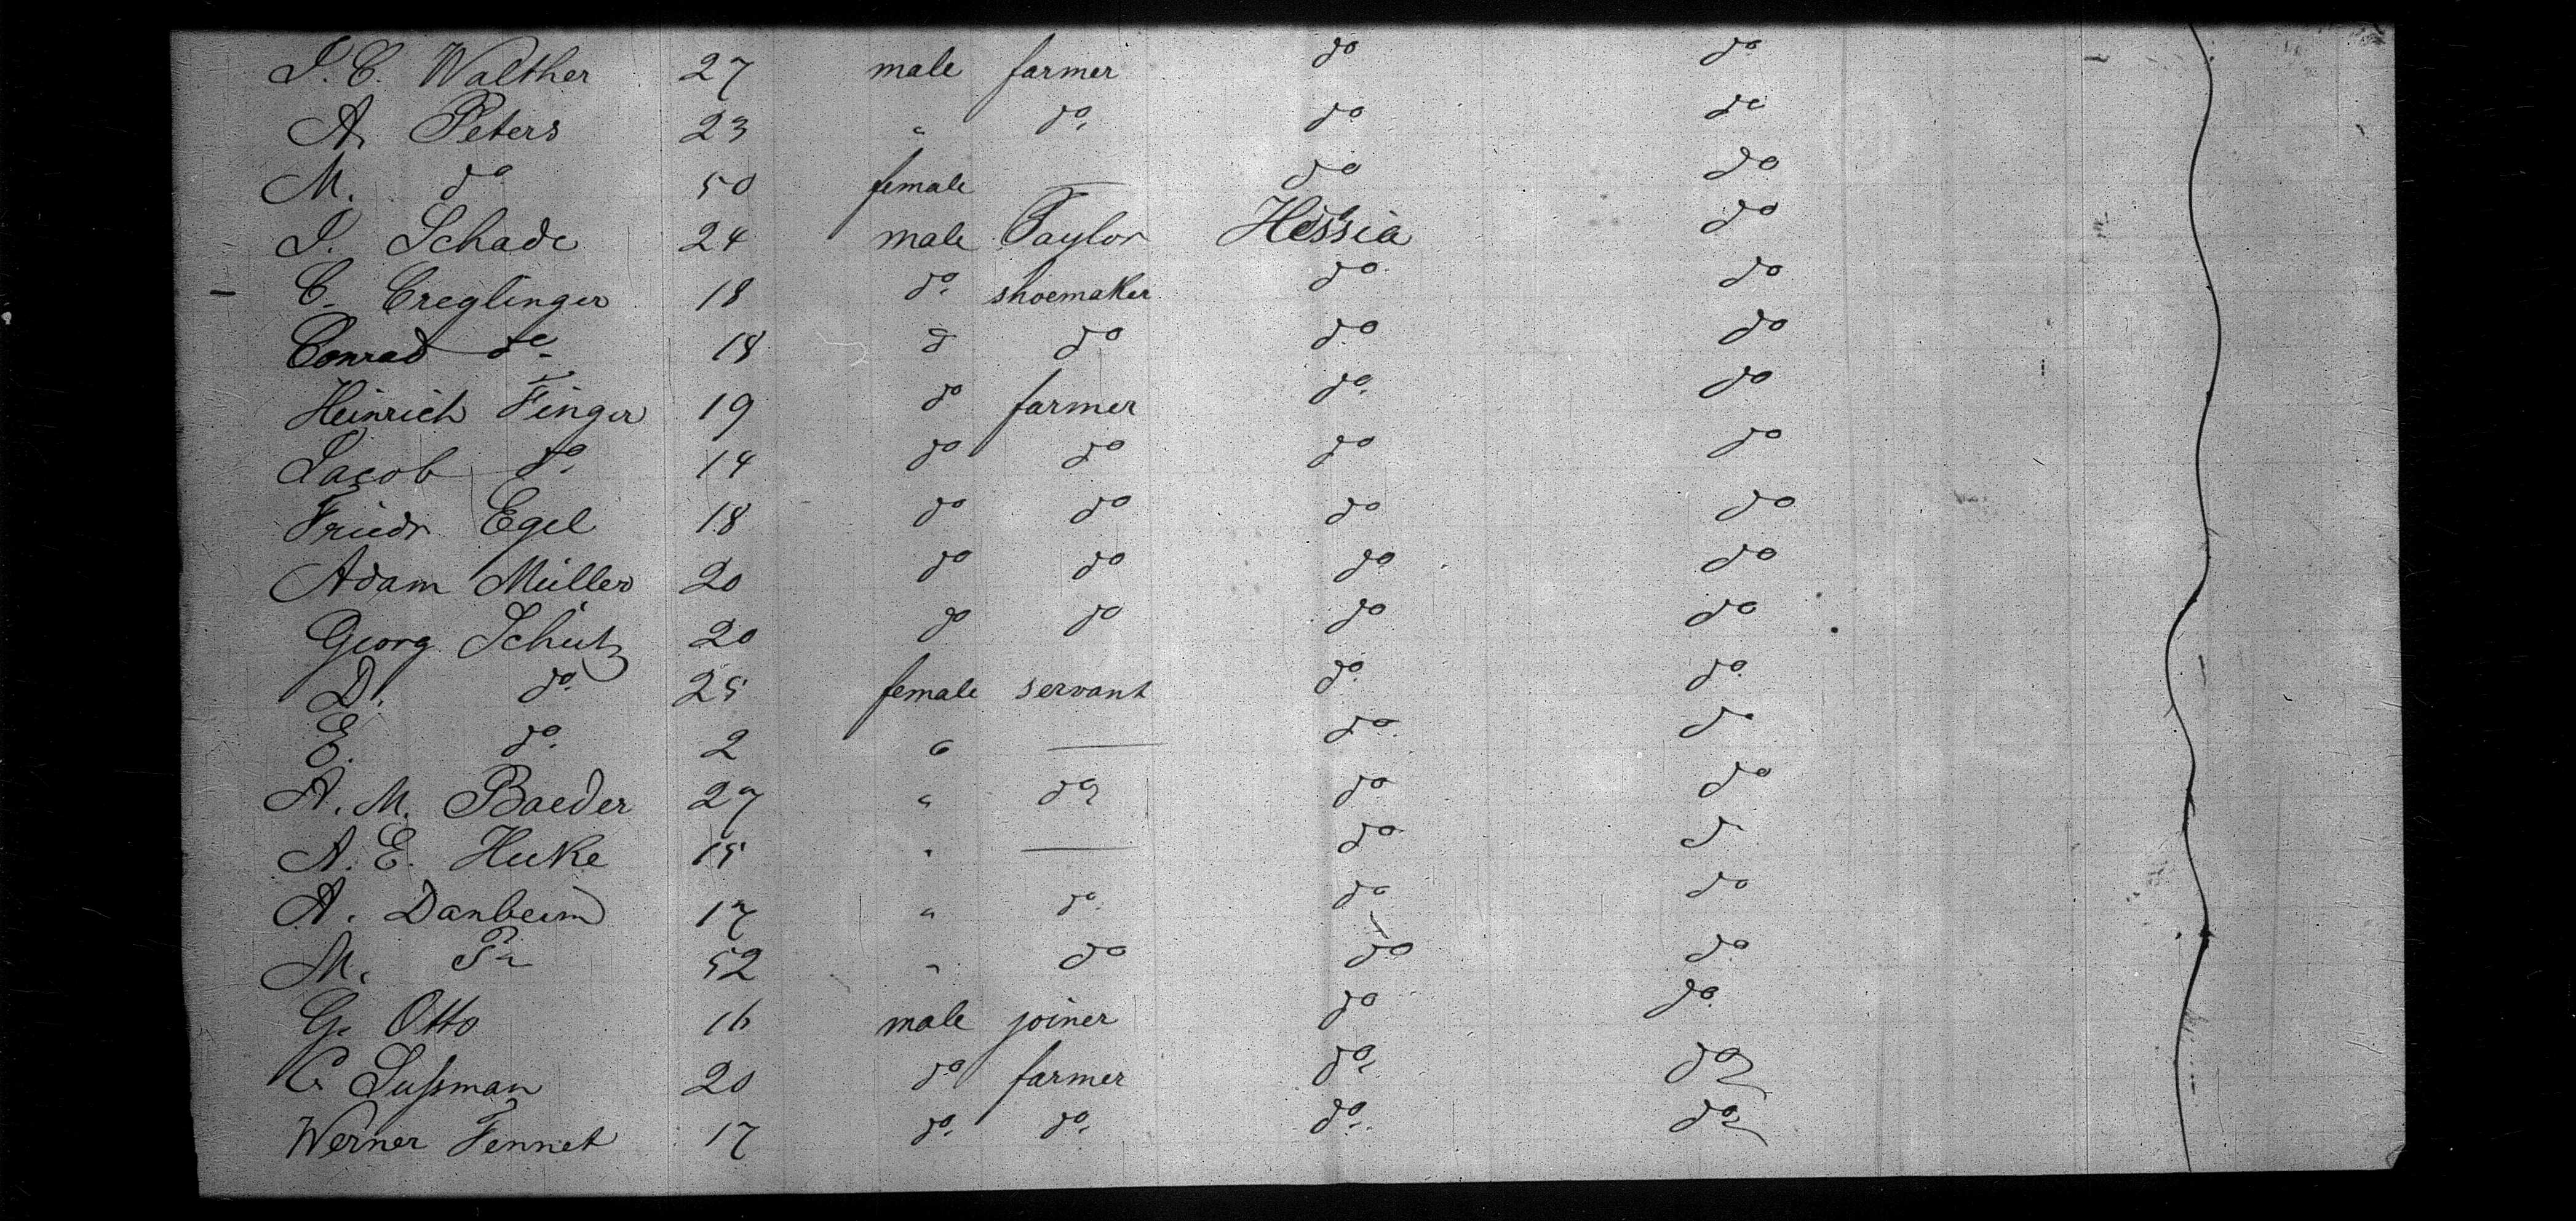 J. C. Walther 27 male farmer do do
A. Peters 23 " do. do do
M. do 50 female — do do
J. Schade 24 male Taylor Hessia do
C. Creglinger 18 do. shoemaker do do
Conrad do. 18 do do do do
Heinrich Finger 19 do farmer do. do
Jacob do. 14 do do do do
Friedr Egel 18 do do do do
Adam Müller 20 do do do do
Georg Schütz 20 do do do do
D. do. 25 female servant do. do.
E. do. 2 " — do. do
A. M. Baeder 27 " do, do do
A. E. Huke 15 " — do do
A. Danheim 17 " do. do do
M. 52 " do do do
G. Otto 16 male joiner do do.
C. Sußman 20 do farmer do, do
Werner Fennet 17 do. do. do. do